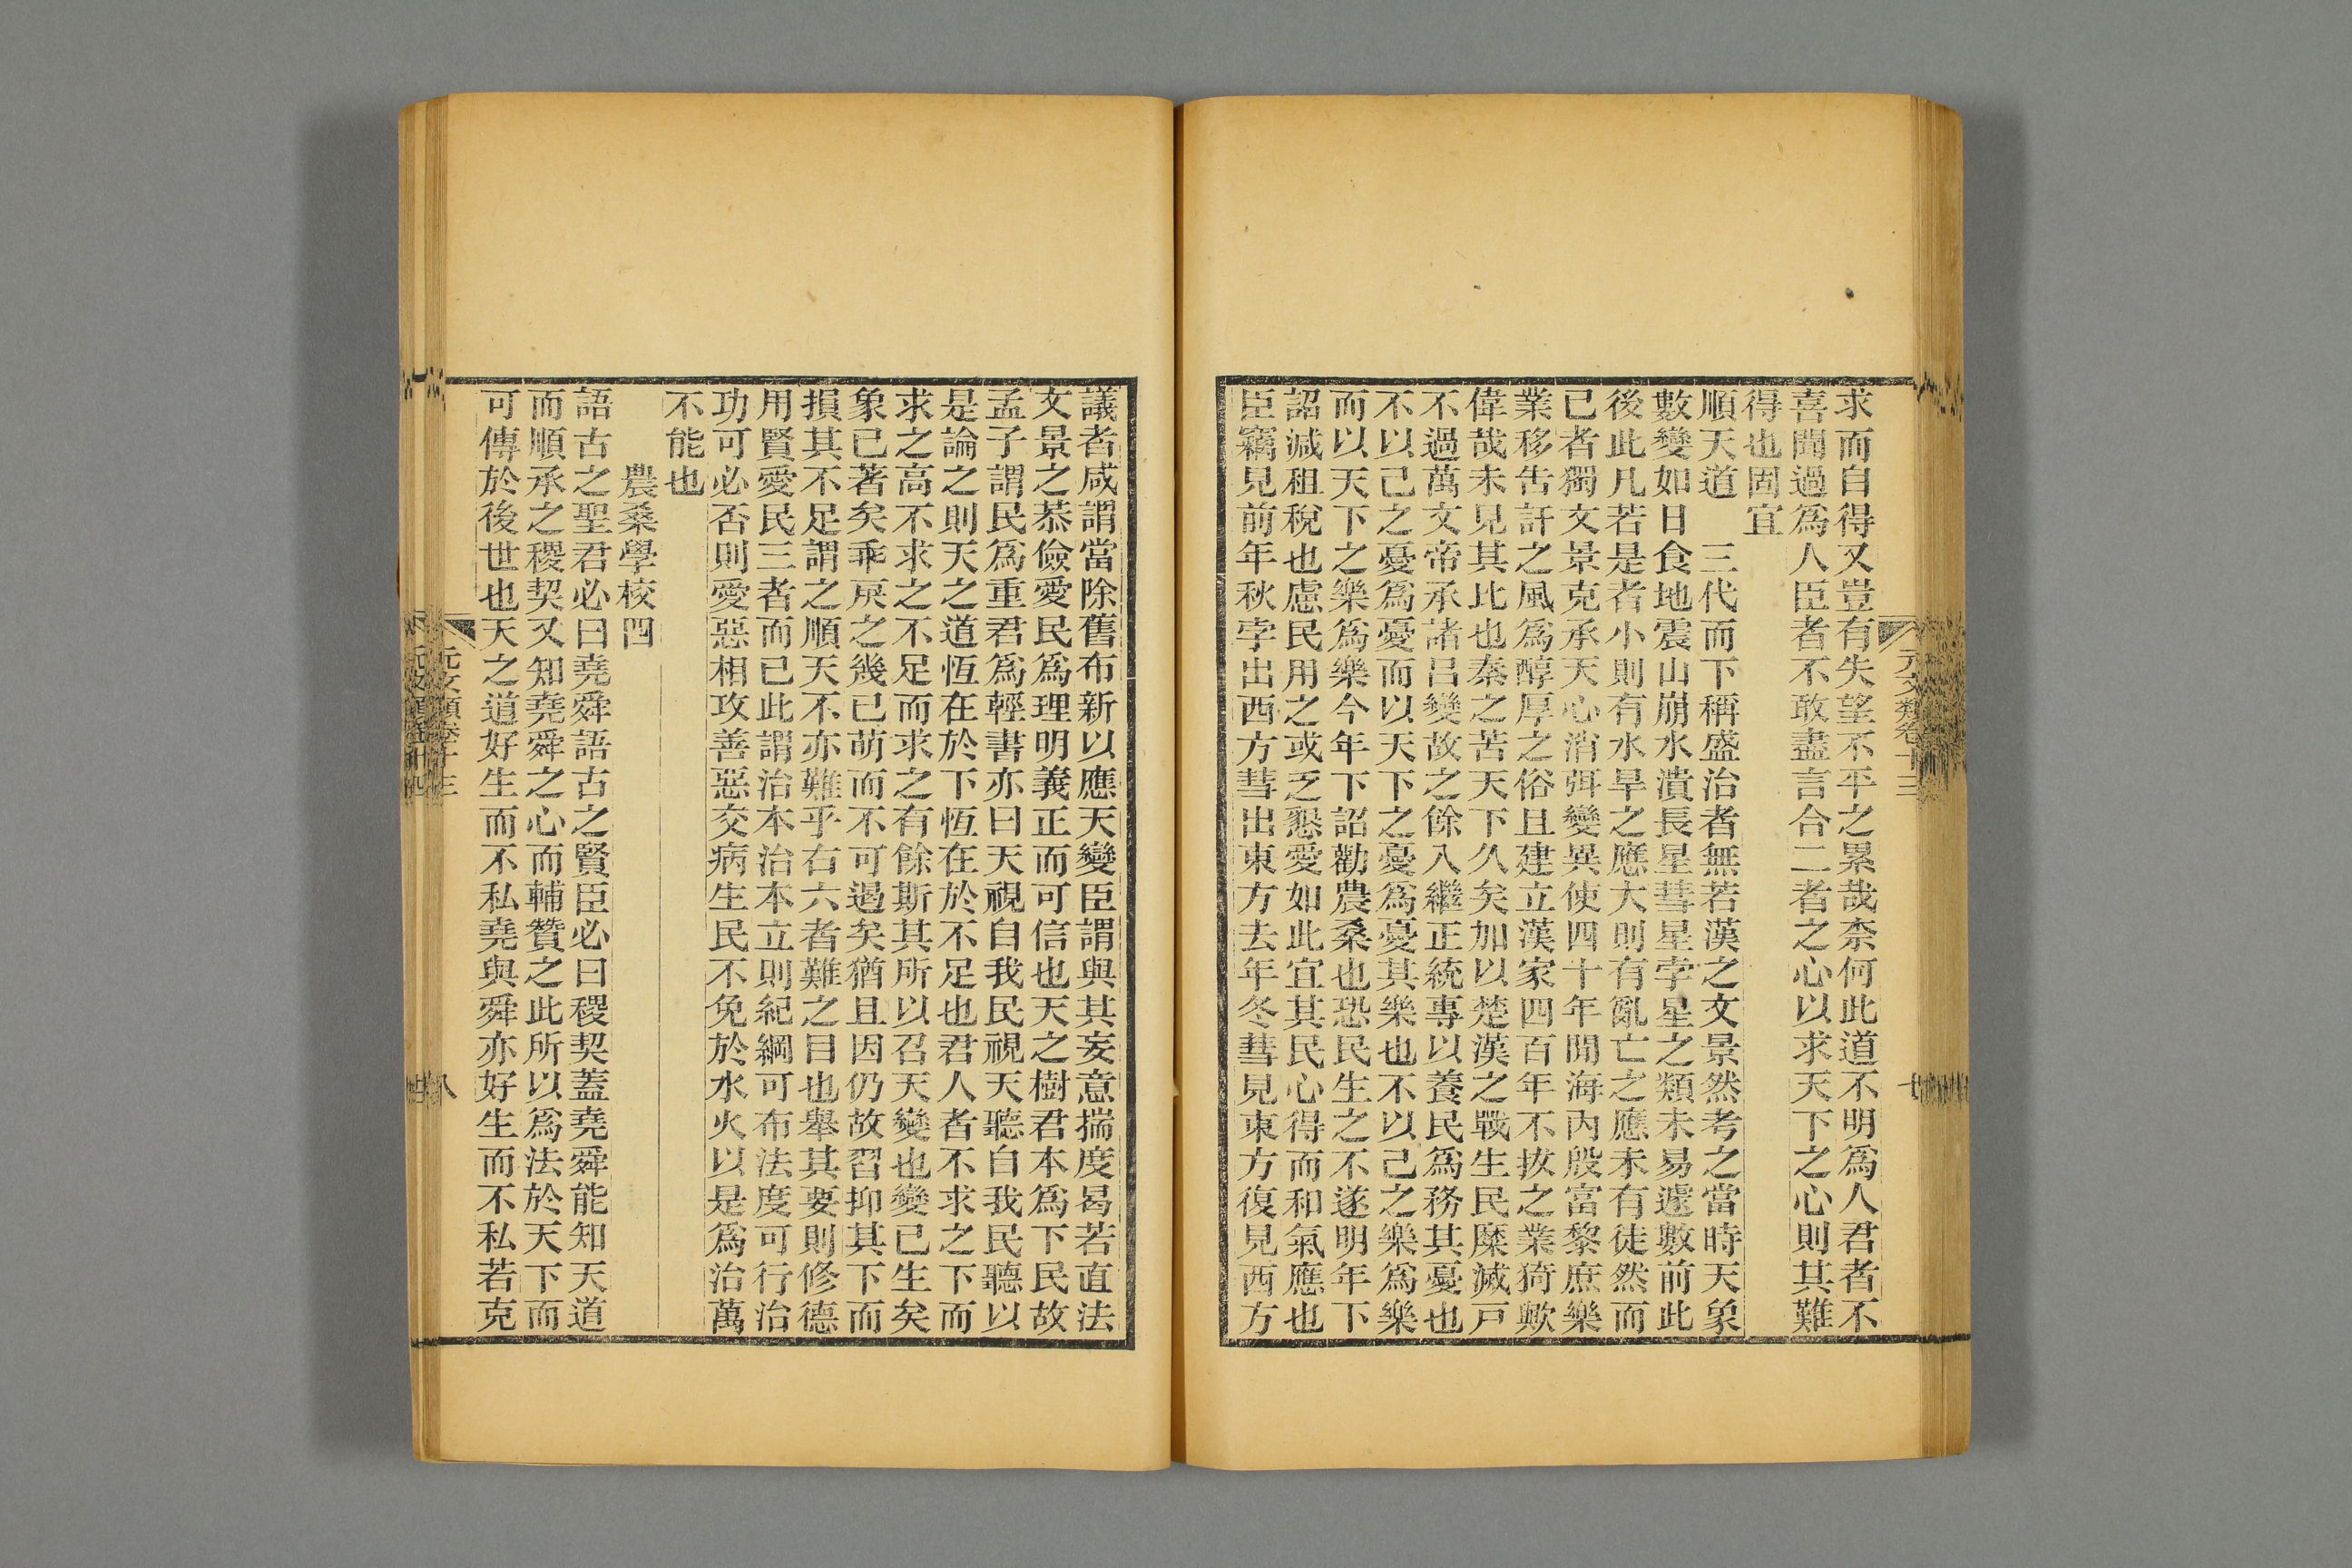 求而自得又豈有失望不平之累哉柰何此道不明爲人君者不
喜聞過爲人臣者不敢盡言合二者之心以求天下之心則其難
得也固宜
順天道　三代而下稱盛治者無若漢之文景然考之當時天象
數變如日食地震山崩水潰長星彗星孛星之類未易遽數前此
後此凡若是者小則有水旱之應大則有亂亡之應未有徒然而
已者獨文景克承天心消弭變異使四十年間海內殷富黎庶樂
業移告訐之風爲醇厚之俗且建立漢家四百年不拔之業猗歟
偉哉未見其比也秦之苦天下久矣加以楚漢之戰生民糜滅戸
不過萬文帝承諸呂變故之餘入繼正統專以養民爲務其憂也
不以己之憂爲憂而以天下之憂爲憂其樂也不以己之樂爲樂
而以天下之樂爲樂今年下詔勸農桑也恐民生之不遂明年下
詔減租稅也慮民用之或乏懇愛如此宜其民心得而和氣應也
臣竊見前年秋孛出西方彗出東方去年冬彗見東方復見西方
元文類卷十三
議者咸謂當除舊布新以應天變臣謂與其妄意揣度曷若直法
文景之恭儉愛民爲理明義正而可信也天之樹君本爲下民故
孟子謂民爲重君爲輕書亦曰天視自我民視天聽自我民聽以
是論之則天之道恆在於下恆在於不足也君人者不求之下而
求之高不求之不足而求之有餘斯其所以召天變也變已生矣
象已著矣乖戾之幾已萌而不可遏矣猶且因仍故習抑其下而
損其不足謂之順天不亦難乎右六者難之目也舉其要則修德
用賢愛民三者而已此謂治本治本立則紀綱可布法度可行治
功可必否則愛惡相攻善惡交病生民不免於水火以是爲治萬
不能也
農桑學校四
語古之聖君必曰堯舜語古之賢臣必曰稷契蓋堯舜能知天道
而順承之稷契又知堯舜之心而輔贊之此所以爲法於天下而
可傳於後世也天之道好生而不私堯與舜亦好生而不私若克
元文類卷十三
八